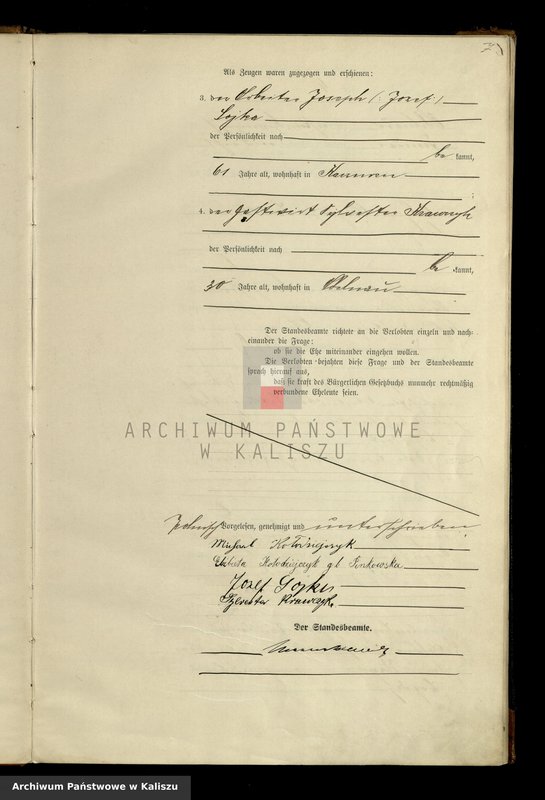 Als Zeugen waren zugezogen und erschienen:
3. der Arbeiter Joseph (: Jozef :)
Sojka
der Persönlichkeit nach
be kannt,
61 Jahre alt, wohnhaft in
4. der Gastwirt Sylvester Krawczyk
der Persönlichkeit nach
be kannt,
30 Jahre alt, wohnhaft in Adelnau
Der Standesbeamte richtete an die Verlobten einzeln und nach-
einander die Frage:
ob sie die Ehe miteinander eingehen wollen.
Die Verlobten bejahten diese Frage und der Standesbeamte
sprach hierauf aus,
daß sie kraft des Bürgerlichen Gesetzbuchs nunmehr rechtmäßig
verbundene Eheleute seien.
ARCHIWUM PAŃSTWOWE
W KALISZU
Vorgelesen, genehmigt und unterschrieben
Michael Kołodziejczyk
Elżbieta Kołodziejczyk gb. Pinkowska
Jozef Sojka
Sylvester Krawczyk
Der Standesbeamte.
Archiwum Państwowe w Kaliszu